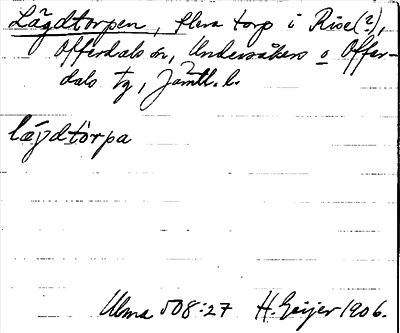 Lägdtorpen, flera torp i Rise(?),
Offerdals sn, Undersåkers o Offer-
dals tg, Jämtl. l.
lägdtòrpa
Ulma 508:27 H. Geijer 1906.